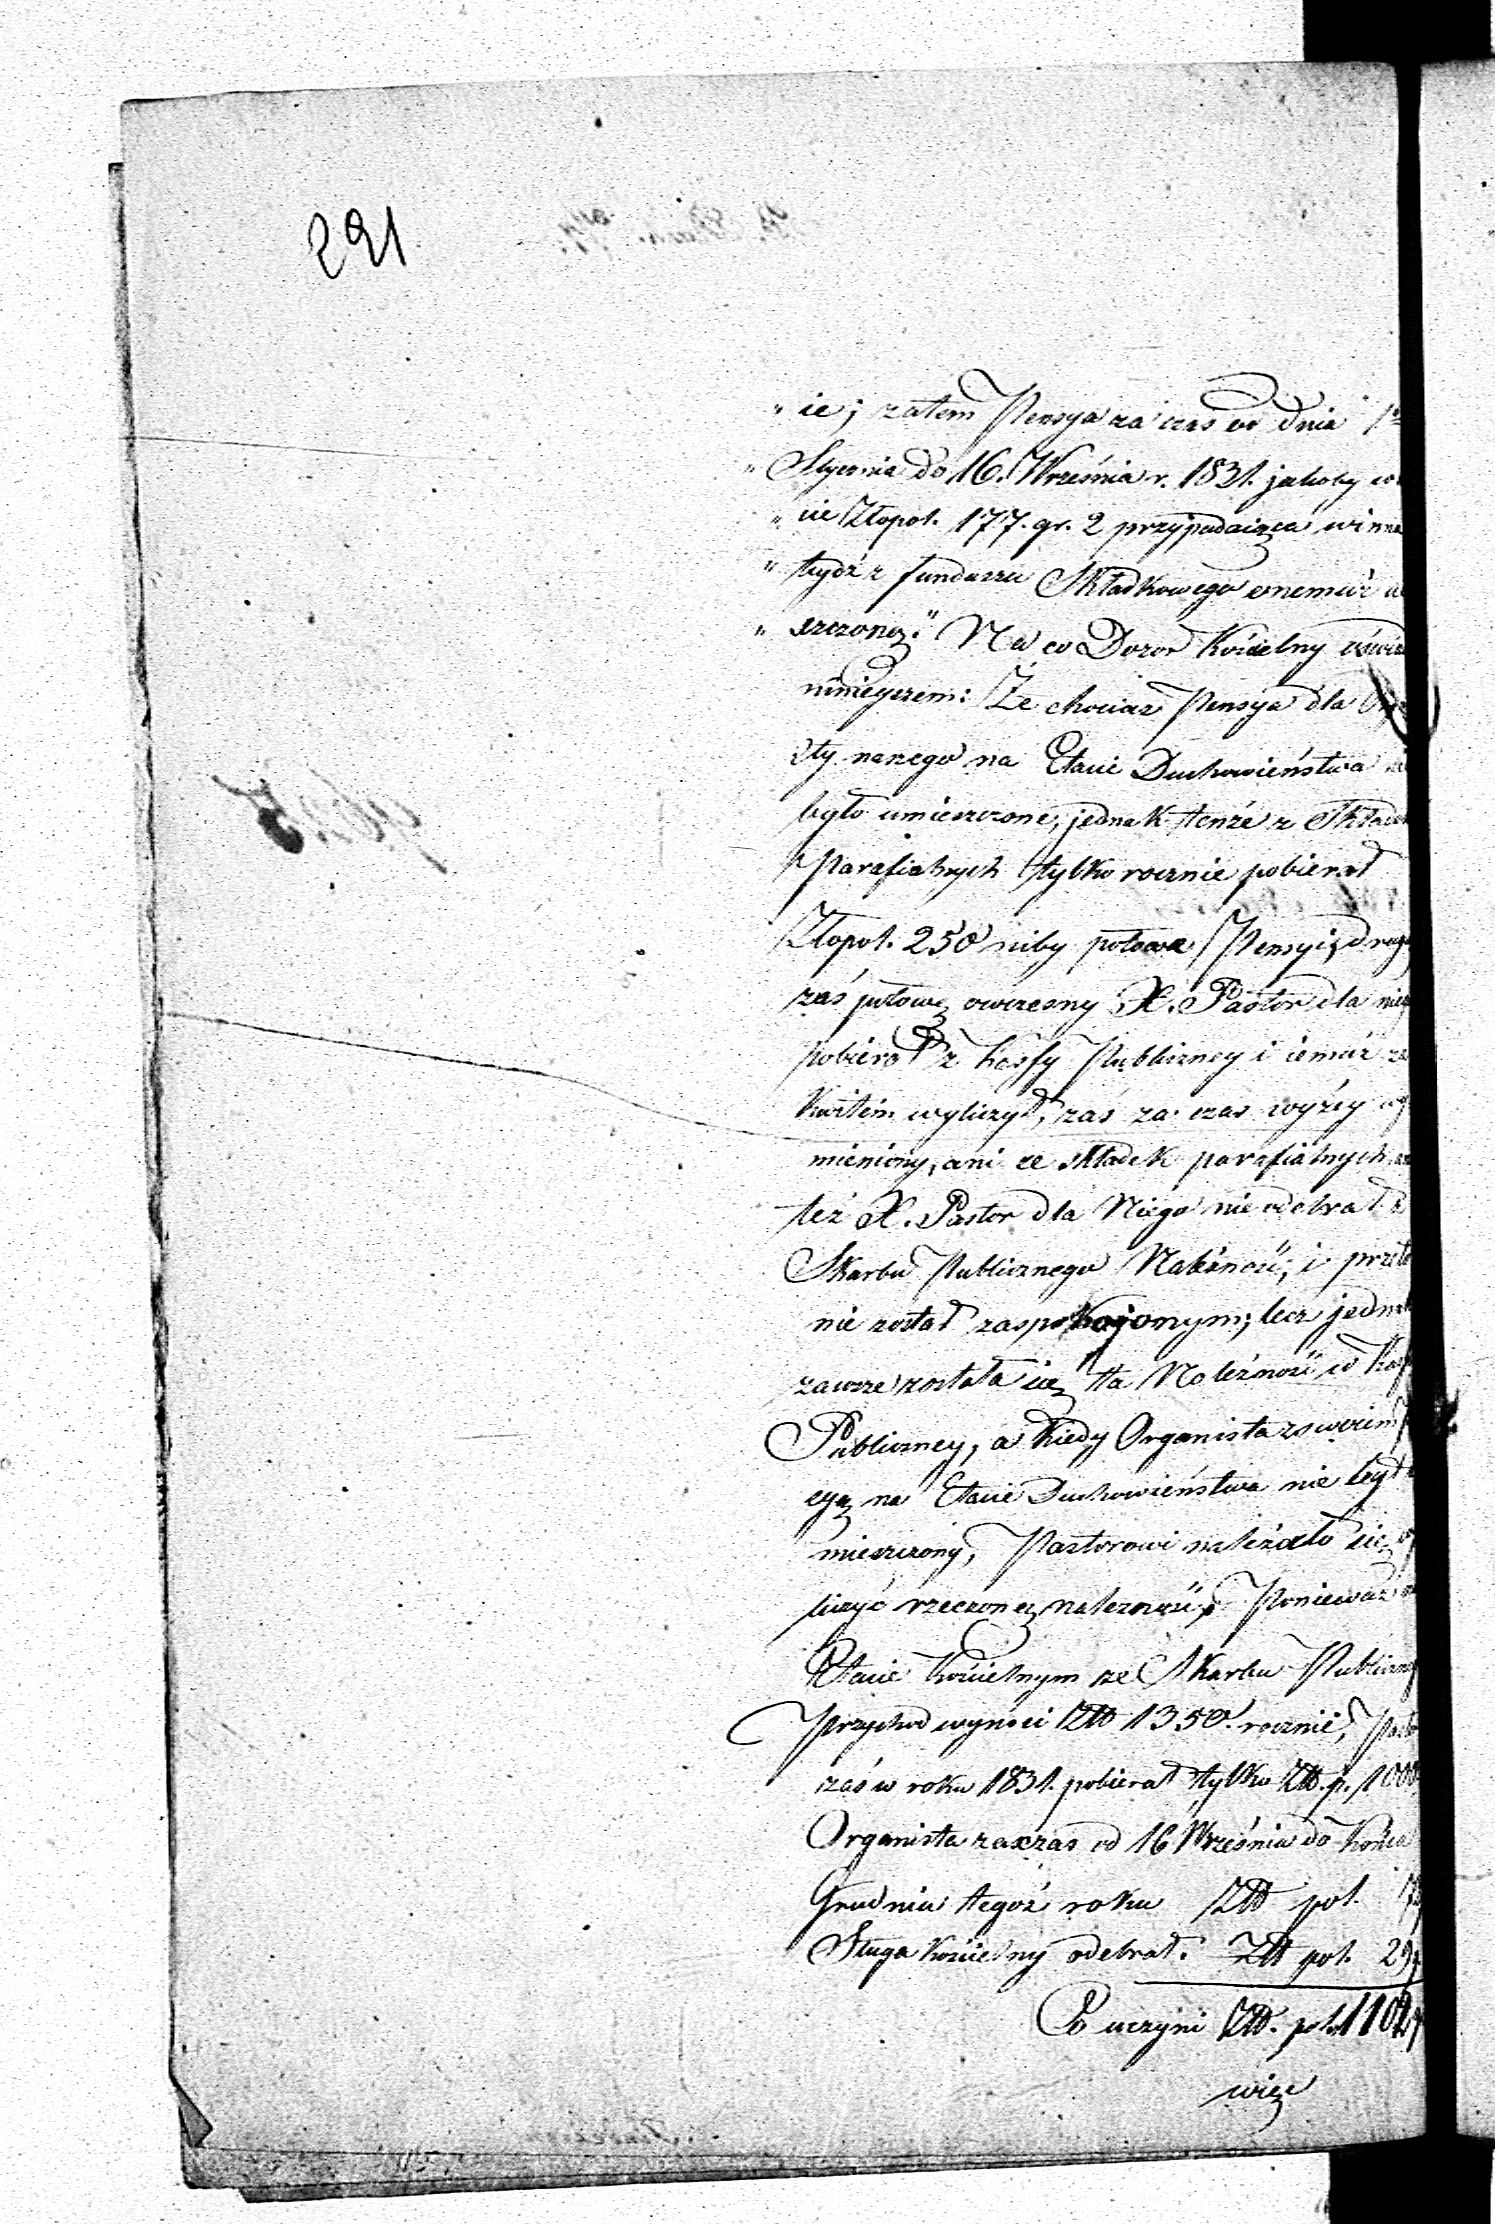 291
" ie; zatem Pensya za czas od dnia 1
" Stycznia do 16. Września r. 1831. jakoby w
" cie Złopol. 177. gr. 2 przypadaiąca winna
" bydź z funduszu Składkowego onemuż
" szczoną." Na co Dozor Kościelny
ninieyszem: Że chociaż Pensya dla
sty naszego na Etacie Duchowieństwa
było umieszczone, jednak tenże z
Parafialnych tylko rocznie pobierał
Złopol. 250 niby połowa Pensyi, drugą
zaś połowę owczesny X. Pastor dla
pobierał z Kassy Publiczney i iemuż
Kwitem wyliczył, zaś za czas wyżey
mieniony, ani ze składek parafialnych
też X. Pastor dla Niego nie odebrał
Skarbu Publicznego Należność, i przeto
nie został zaspokojonym; lecz jednak
zawsze została się ta Należność w
Publiczney, a kiedy Organista z swoiem
cyą na Etacie Duchowieństwa nie był
mieszczony, Pastorowi należało się
liczyć rzeczoną należność, Ponieważ
Etacie Kościelnym ze Skarbu Publiczn
Przychod wynosi Złl 1350. rocznie,
zaś w roku 1831. pobierał tylko Złl. p. 1000
Organista za czas od 16 Września do Końca
Grudnia tegoż roku Złl pol.
Sługa kościelny odebrał. Złl pol. 29
Co uczyni Złl. pol. 1102
więc